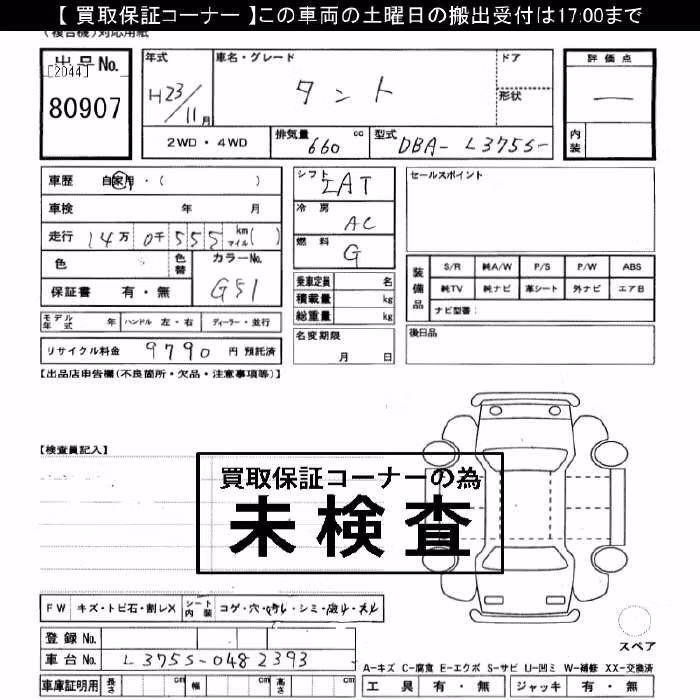 【 買取保証コーナー 】この車両の土曜日の搬出受付は17:00まで
(複合機)対応用紙
出品No. 年式 車名・グレード ドア 評価点
[2044]
80907 H23/11月 タント 形状 一
2WD・4WD 排気量 660 cc 型式 DBA-L375S- 内装
車歴 自家用・( ) シフト IAT セールスポイント
車検 年 月 冷房 AC
走行 14万 0千 555 km マイル( ) 燃料 G
色 色替 カラーNo. G51
保証書 有・無
乗車定員 名
積載量 kg
総重量 kg
装備品 S/R 純A/W P/S P/W ABS
純TV 純ナビ 革シート 外ナビ エアB
ナビ型番:
モデル年式 年 ハンドル 左・右 ディーラー・並行
名変期限 月 日
後日品
リサイクル料金 9790 円 預託済
【出品店申告欄(不良箇所・欠品・注意事項等)】
【検査員記入】
買取保証コーナーの為
未検査
FW キズ・トビ石・割レX シート内装 コゲ・穴・切レ・シミ・破レ・スレ
登録No.
車台No. L375S-0482393
スペア
A-キズ C-腐食 E-エクボ S-サビ U-凹ミ W-補修 XX-交換済
車庫証明用 長さ cm 幅 cm 高さ cm 工具 有・無 ジャッキ 有・無